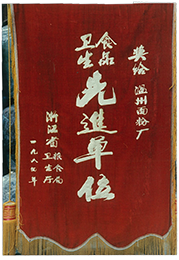 奖给 温州面粉厂
食品
卫生
先進單位
浙江省
粮食局
卫生厅
一九八七年